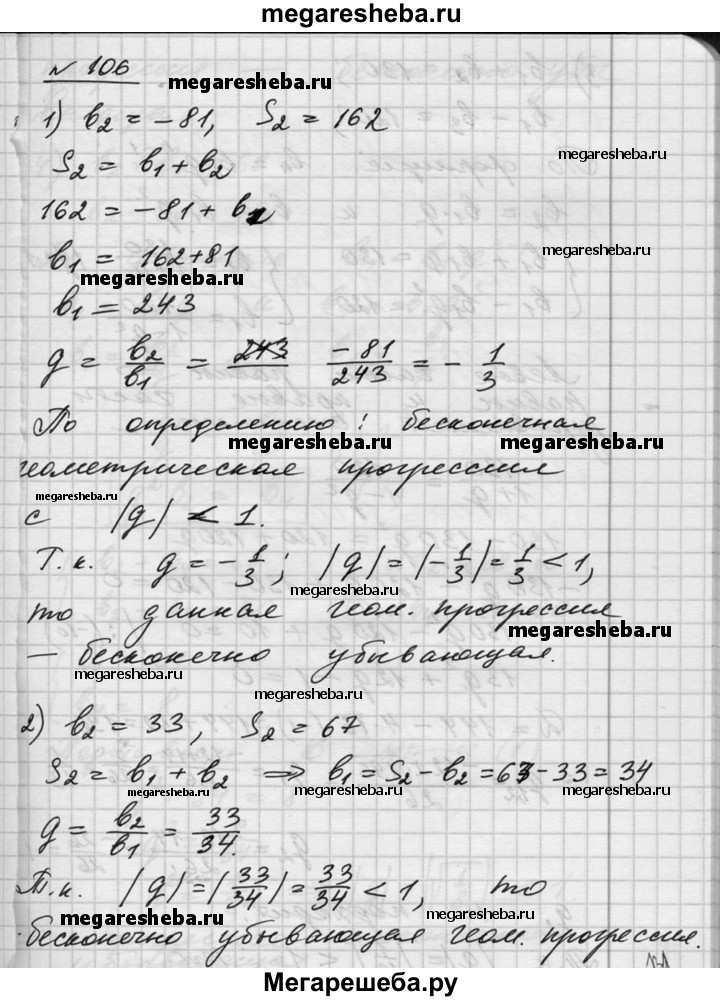 megaresheba.ru
№ 106
megaresheba.ru
1) b₂ = -81, S₂ = 162
megaresheba.ru
S₂ = b₁ + b₂
162 = -81 + b₁
megaresheba.ru
b₁ = 162+81
megaresheba.ru
b₁ = 243
q = b₂/b₁ = -81/243 = - 1/3
megaresheba.ru
По определению: бесконечная
megaresheba.ru megaresheba.ru
геометрическая прогрессия
megaresheba.ru
с |q| < 1.
Т.к. q = -1/3; |q| = |-1/3| = 1/3 < 1,
megaresheba.ru
то данная геом. прогрессия
megaresheba.ru
– бесконечно убывающая.
megaresheba.ru
megaresheba.ru
2) b₂ = 33, S₂ = 67
S₂ = b₁ + b₂ ⇒ b₁ = S₂ - b₂ = 67 - 33 = 34
megaresheba.ru megaresheba.ru megaresheba.ru
q = b₂/b₁ = 33/34.
Т.к. |q| = |33/34| = 33/34 < 1, то
megaresheba.ru megaresheba.ru
бесконечно убывающая геом. прогрессия.
Мегарешеба.ру